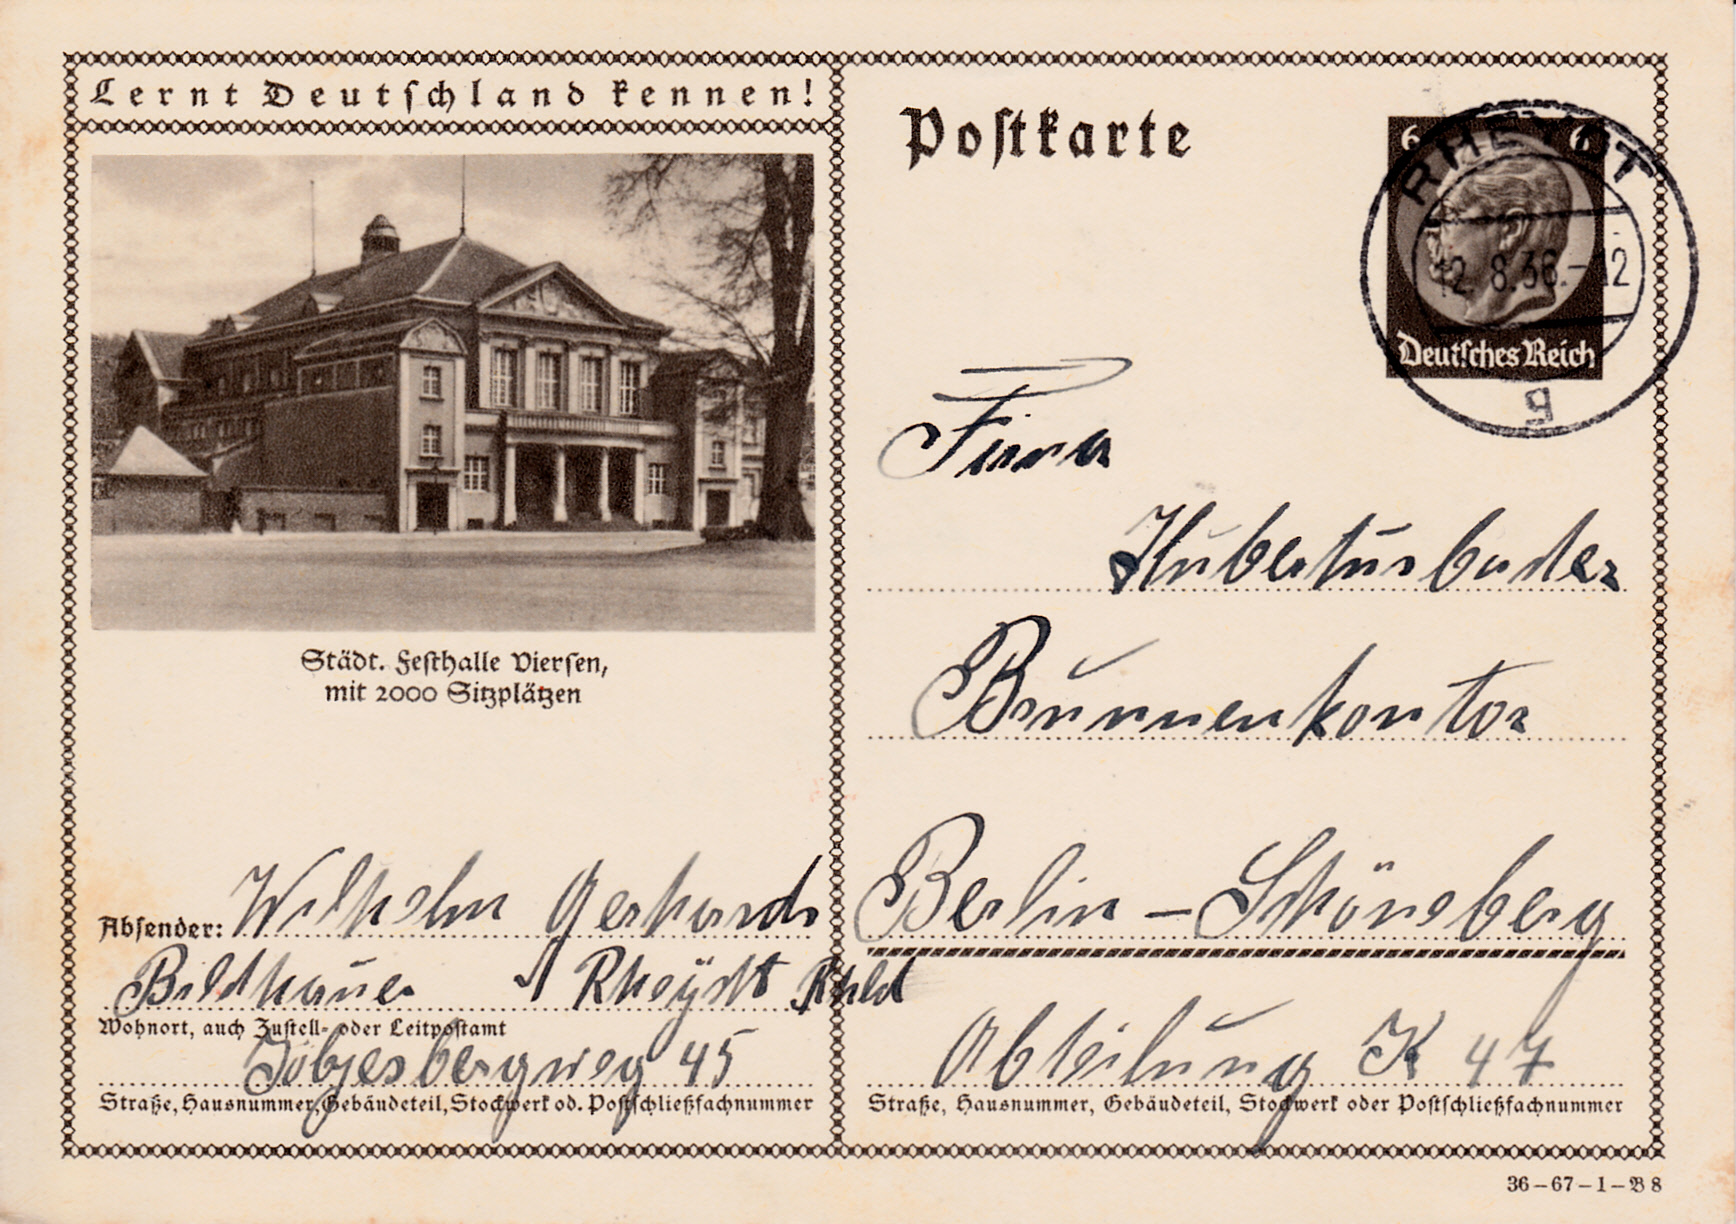 Lernt Deutschland kennen!
Städt. Festhalle Viersen,
mit 2000 Sitzplätzen
Absender: Wilhelm Gerhards
Bildhauer Rheydt Rhld
Wohnort, auch Zustell- oder Leitpostamt
45
Straße, Hausnummer, Gebäudeteil, Stockwerk od. Postschließfachnummer
Postkarte
6 6
RHEYDT
12.8.36.-12
Deutsches Reich
g
Firma
Hubertusbader
Brunnenkontor
Berlin-Schöneberg
Abteilung K 47
Straße, Hausnummer, Gebäudeteil, Stockwerk oder Postschließfachnummer
36-67-1-B 8